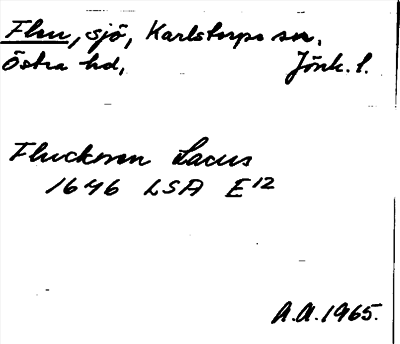 Flen, sjö, Karlstorps sn.
Östra hd, Jönk. l.
Fluckoen Lacus
1646 LSA E12
A.A. 1965.